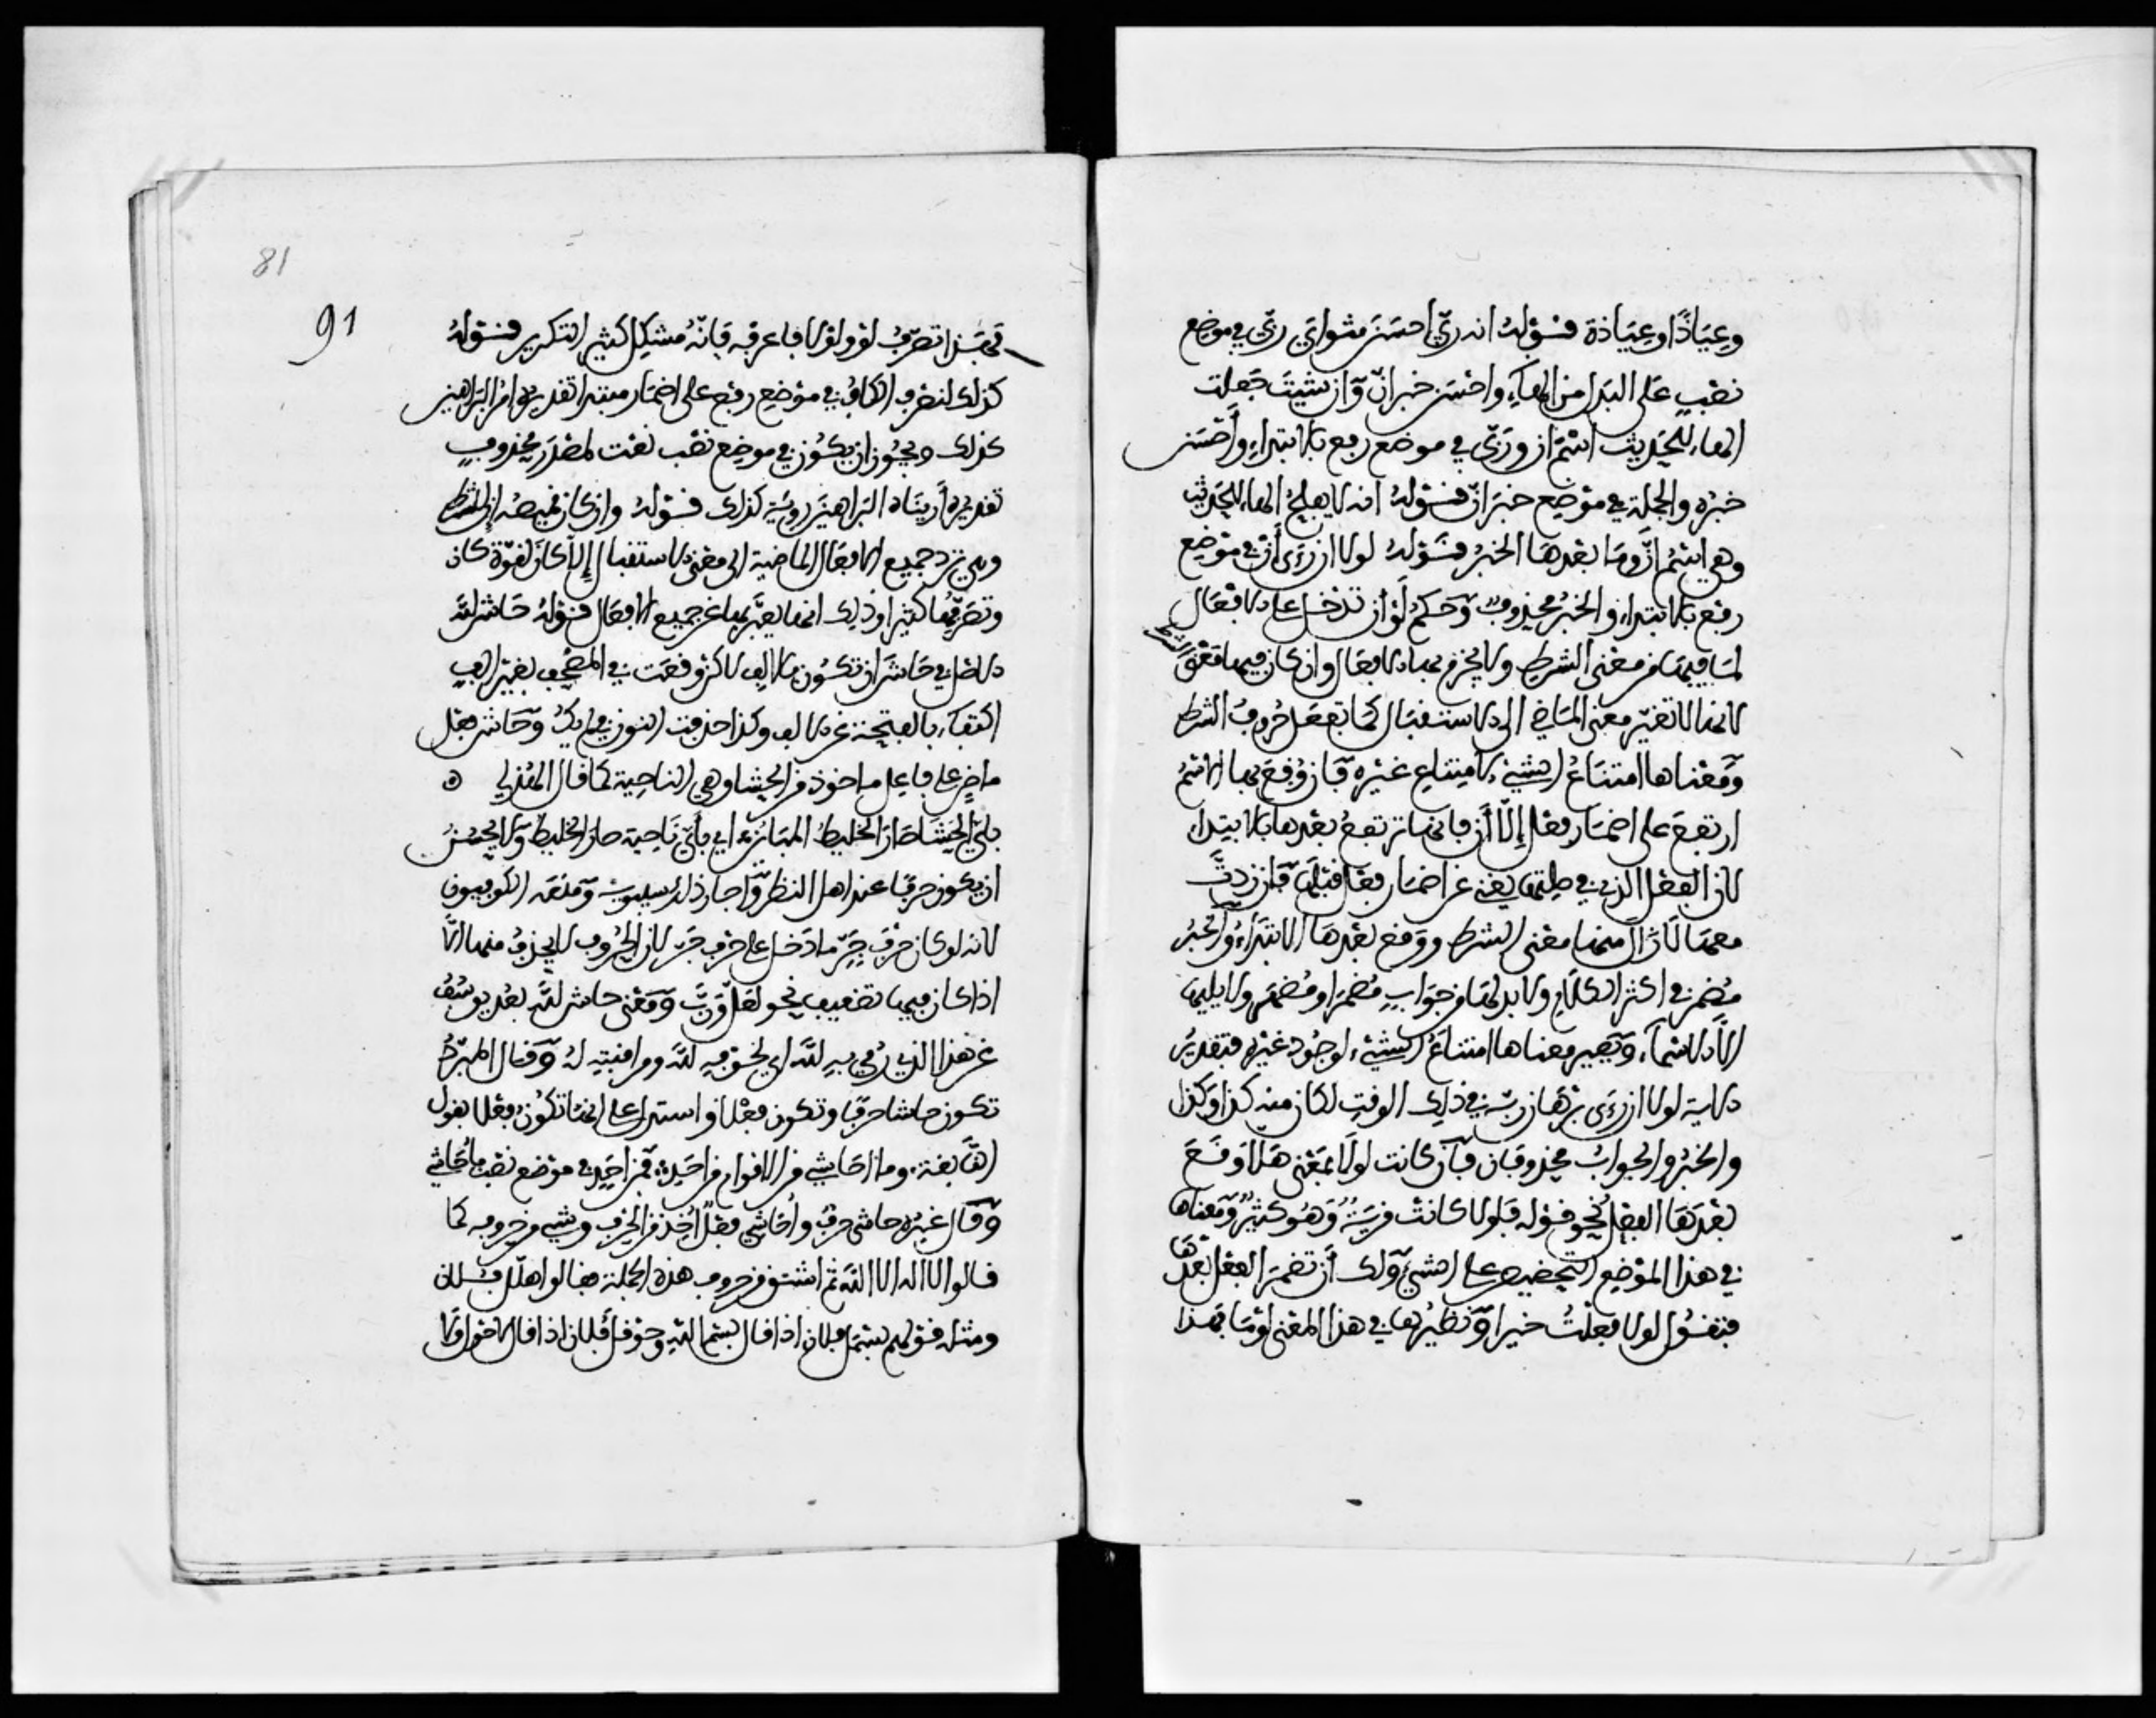 وعِيَاذًا وعِيَاذة قوله انه ربّي احسَنَ مثواي ربّي في موضع
نصْبٍ عَلى البَدل من الهاء واحْسَن خبر انّ وَان شئتَ جَعلت
الهاء للحَديث اسْمَ ان وربّي في موضع رفع بالابتداءِ وأحْسَن
خبرُه والجملة في موْضِع خبَر انّ قوْلهُ انه لا يفلحُ الهاء للحَديث
وهي اسْمُ انّ ومَا بعْدهَا الخبَرُ قوْلهُ لولا ان رءَى أنْ في موْضِع
رفْع بالابتداء والخبَرُ محْذوفٌ وَحكمُ لَوْ أن تدْخل على الافعَال
لمَا فيهَا من معْنى الشرط ولا يُجزم بها الافعَال وان كان فيها مَعْنى الشرط
لانها لا تغيّر معنى المَاضي الى الاستقبَال كمَا تفعَل حُروفُ الشرط
وَمَعْناها امتنَاعُ الشيْء لامتناع غيْره فَان وَقعَ بعدها الاسْمُ
ارتفعَ على اضمَار فعْل إلّا أنّ فانها ترتفعُ بعْدها بالابتداء
لان الفعْل الذي في صلتها يغني عن اضمَار فعْل قبْلهَا فَان زدْتَّ
معهَا لا زَال منها معْنى الشرط ووَقع بعْدهَا الابتدَاءُ والخبَرُ
مُضمر في اكثر الكلام ولا بد لهَا من جوَابٍ مُضمَر او مُظهَر ولا يليهَا
الّا الاسْماء وَيَصير معناها امتناعُ الشيْء لوجُود غيْره فتقديرُ
الاية لولا ان رءَى برْهَان ربّه في ذلِك الوقتِ لكان منه كذا وكذا
والخبَرُ والجوابُ محذوفان فَان كانت لوْلا بمَعْنى هَلّا وَقعَ
بعْدَهَا الفعْل نحو قوْله فلولا كانتْ قريَةٌ وَهُو كثيْرٌ وَمَعْناها
في هذا الموْضِع التحْضيض على الشيْء وَلك أن تضمرَ الفعْل بعْدَهَا
فتقول لولا فعلتُ خيرا وَنظيرُها في هذا المعْنى لوْمَا فهَذا
فهَذا تصرّفُ لوْ ولولا فاعرفه فانّهُ مشكِل كثيرُ التكرير قوْلهُ
كذلك لنصْرف الكافُ في موْضِع رفع على اضمَار مبتدا تقديره امْرُ البَراهين
كذلك ويجُوز ان يكُون في موضِع نصْب نعْت لمصْدَر محْذوفٍ
تقديرُه أريْنَاه البَراهينَ رويَة كذلك قوْلهُ وان كان قميصُه إنْ للشرْط
وهي تردّ جميع الافعَال الماضية الى معْنى الاستقبَال إلا كان لقوّة كان
وتصَرفهَا كثيرا وذلك انها يعبّر بها عن جميع الافعَال قوْلهُ حَاش لله
الاصْل في حَاش أن تكُون بالالِف لاكن وقعَت في المصْحف بغيْر الفٍ
اكتفاء بالفتحة عن الالف وكذا حذفت النون في لم يكُ وَحَاش فعْل
ماضٍ على فاعل ماخوذ من الحشا وهي الناحية كما قال الهُذلي ⊙
بايّ الحَشَا صَارَ الخليطُ المبَاينُ اي بأيّ نَاحِية صار الخليط وَلا يحسُنُ
ان يكون حرفًا عند اهل النظر وَاجاز ذلك سيبويه وَمنَعَه الكوفيون
لانه لو كان حرْفَ جَرّ ما دَخل على حرْفِ جَرّ لان الحُروف لا يحذفُ منها الّا
اذا كان فيها تضعيف نحو لعَلّ وَربَّ وَمَعْنى حاش لله بعُد يوسُفُ
عن هذا الذي رُمي بهِ لله اي لخوْفه لله ومراقبتِهِ لهُ وَقال المبَرّدُ
تكون حاشا حرفًا وتكون فعْلا واستدل على انهَا تكُون فعْلا بقول
النّابغة وما احَاشي من الاقوام من احَدٍ فَمن احَدٍ في موْضع نصْب باُحَاشي
وَقال غيْرُه حاشى حرْفٌ وأُحَاشي فعْلٌ اُخِذ من الحرْف وبُني من حروفه كمَا
قالوا لا اله الا الله ثم اشتق من حروف هذه الجملة فقالوا هلّل فلان
ومثله قوْلهم بسْمَل فلان اذا قال بسْم الله وحَوْقل فُلان اذا قال لا حَول ولا
91
81